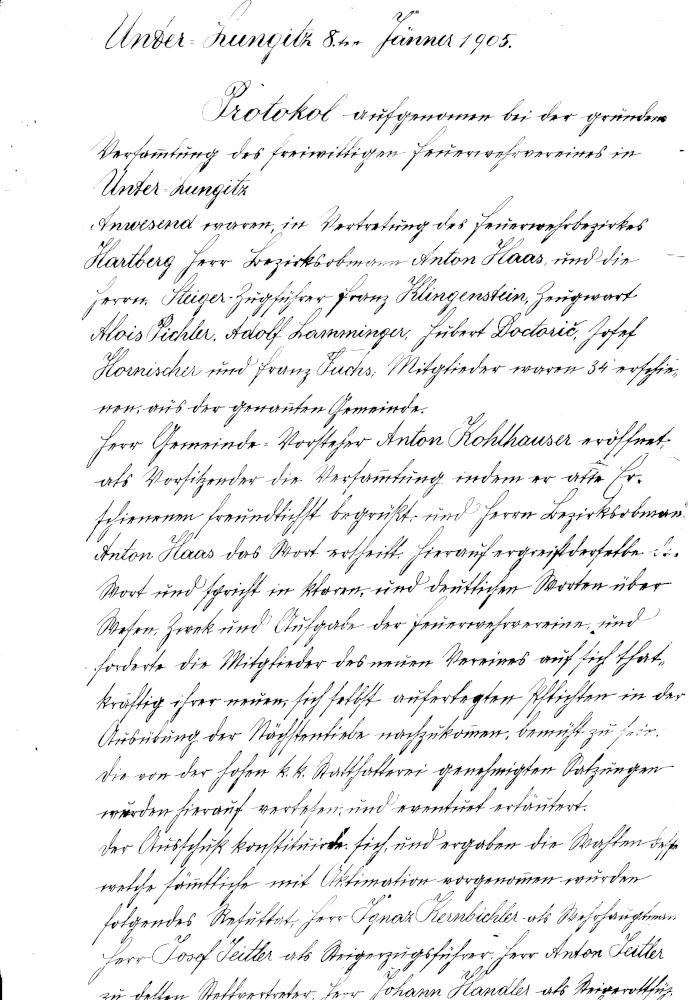 Unter-Lungitz 8.ten Jänner 1905.
Protokol aufgenomen bei der gründen
Versamlung des freiwilligen Feuerwehrvereines in
Unter-Lungitz
Anwesend waren, in Vertretung des Feuerwehrbezirkes
Hartberg Herr Bezirksobmann Anton Haas, und die
Herrn, Steiger-Zugführer Franz Klingenstein, Zeugwart
Alois Pichler, Adolf Lamminger, Hubert Doctorič, Josef
Hornischer und Franz Fuchs, Mitglieder waren 34 erschie-
nen, aus der genanten Gemeinde.
Herr Gemeinde-Vorsteher Anton Kohlhauser eröffnet,
als Vorsitzender die Versamlung indem er alle Er-
schienenen freundlichst begrüßt, und Herrn Bezirksobman
Anton Haas das Wort ertheilt. Hierauf ergreift derselbe
Wort und spricht in klaren, und deutlichen Worten über
Wesen, Zwek und Aufgabe der Feuerwehrvereine, und
forderte die Mitglieder des neuen Vereines auf sich that-
kräftig ihrer neuen, sich selbst auferlegten Pflichten in der
Ausübung der Nächstenliebe nachzukomen, bemüht zu sein.
Die von der hohen k.k. Statthalterei genehmigten Satzungen
wurden hierauf verlesen, und eventuel erläutert.
Der Ausschuß konstituirte sich, und ergaben die Wahlen
welche sämtliche mit Aklimation vorgenomen wurden
folgendes Resultat, Herr Ignaz Kernbichler als Wehrhauptman
Herr Josef Zeitler als Steigerzugsführer, Herr Anton Zeitler
zu dessen Stellvertreter, Herr Johann Handler als Steigerrottfüh